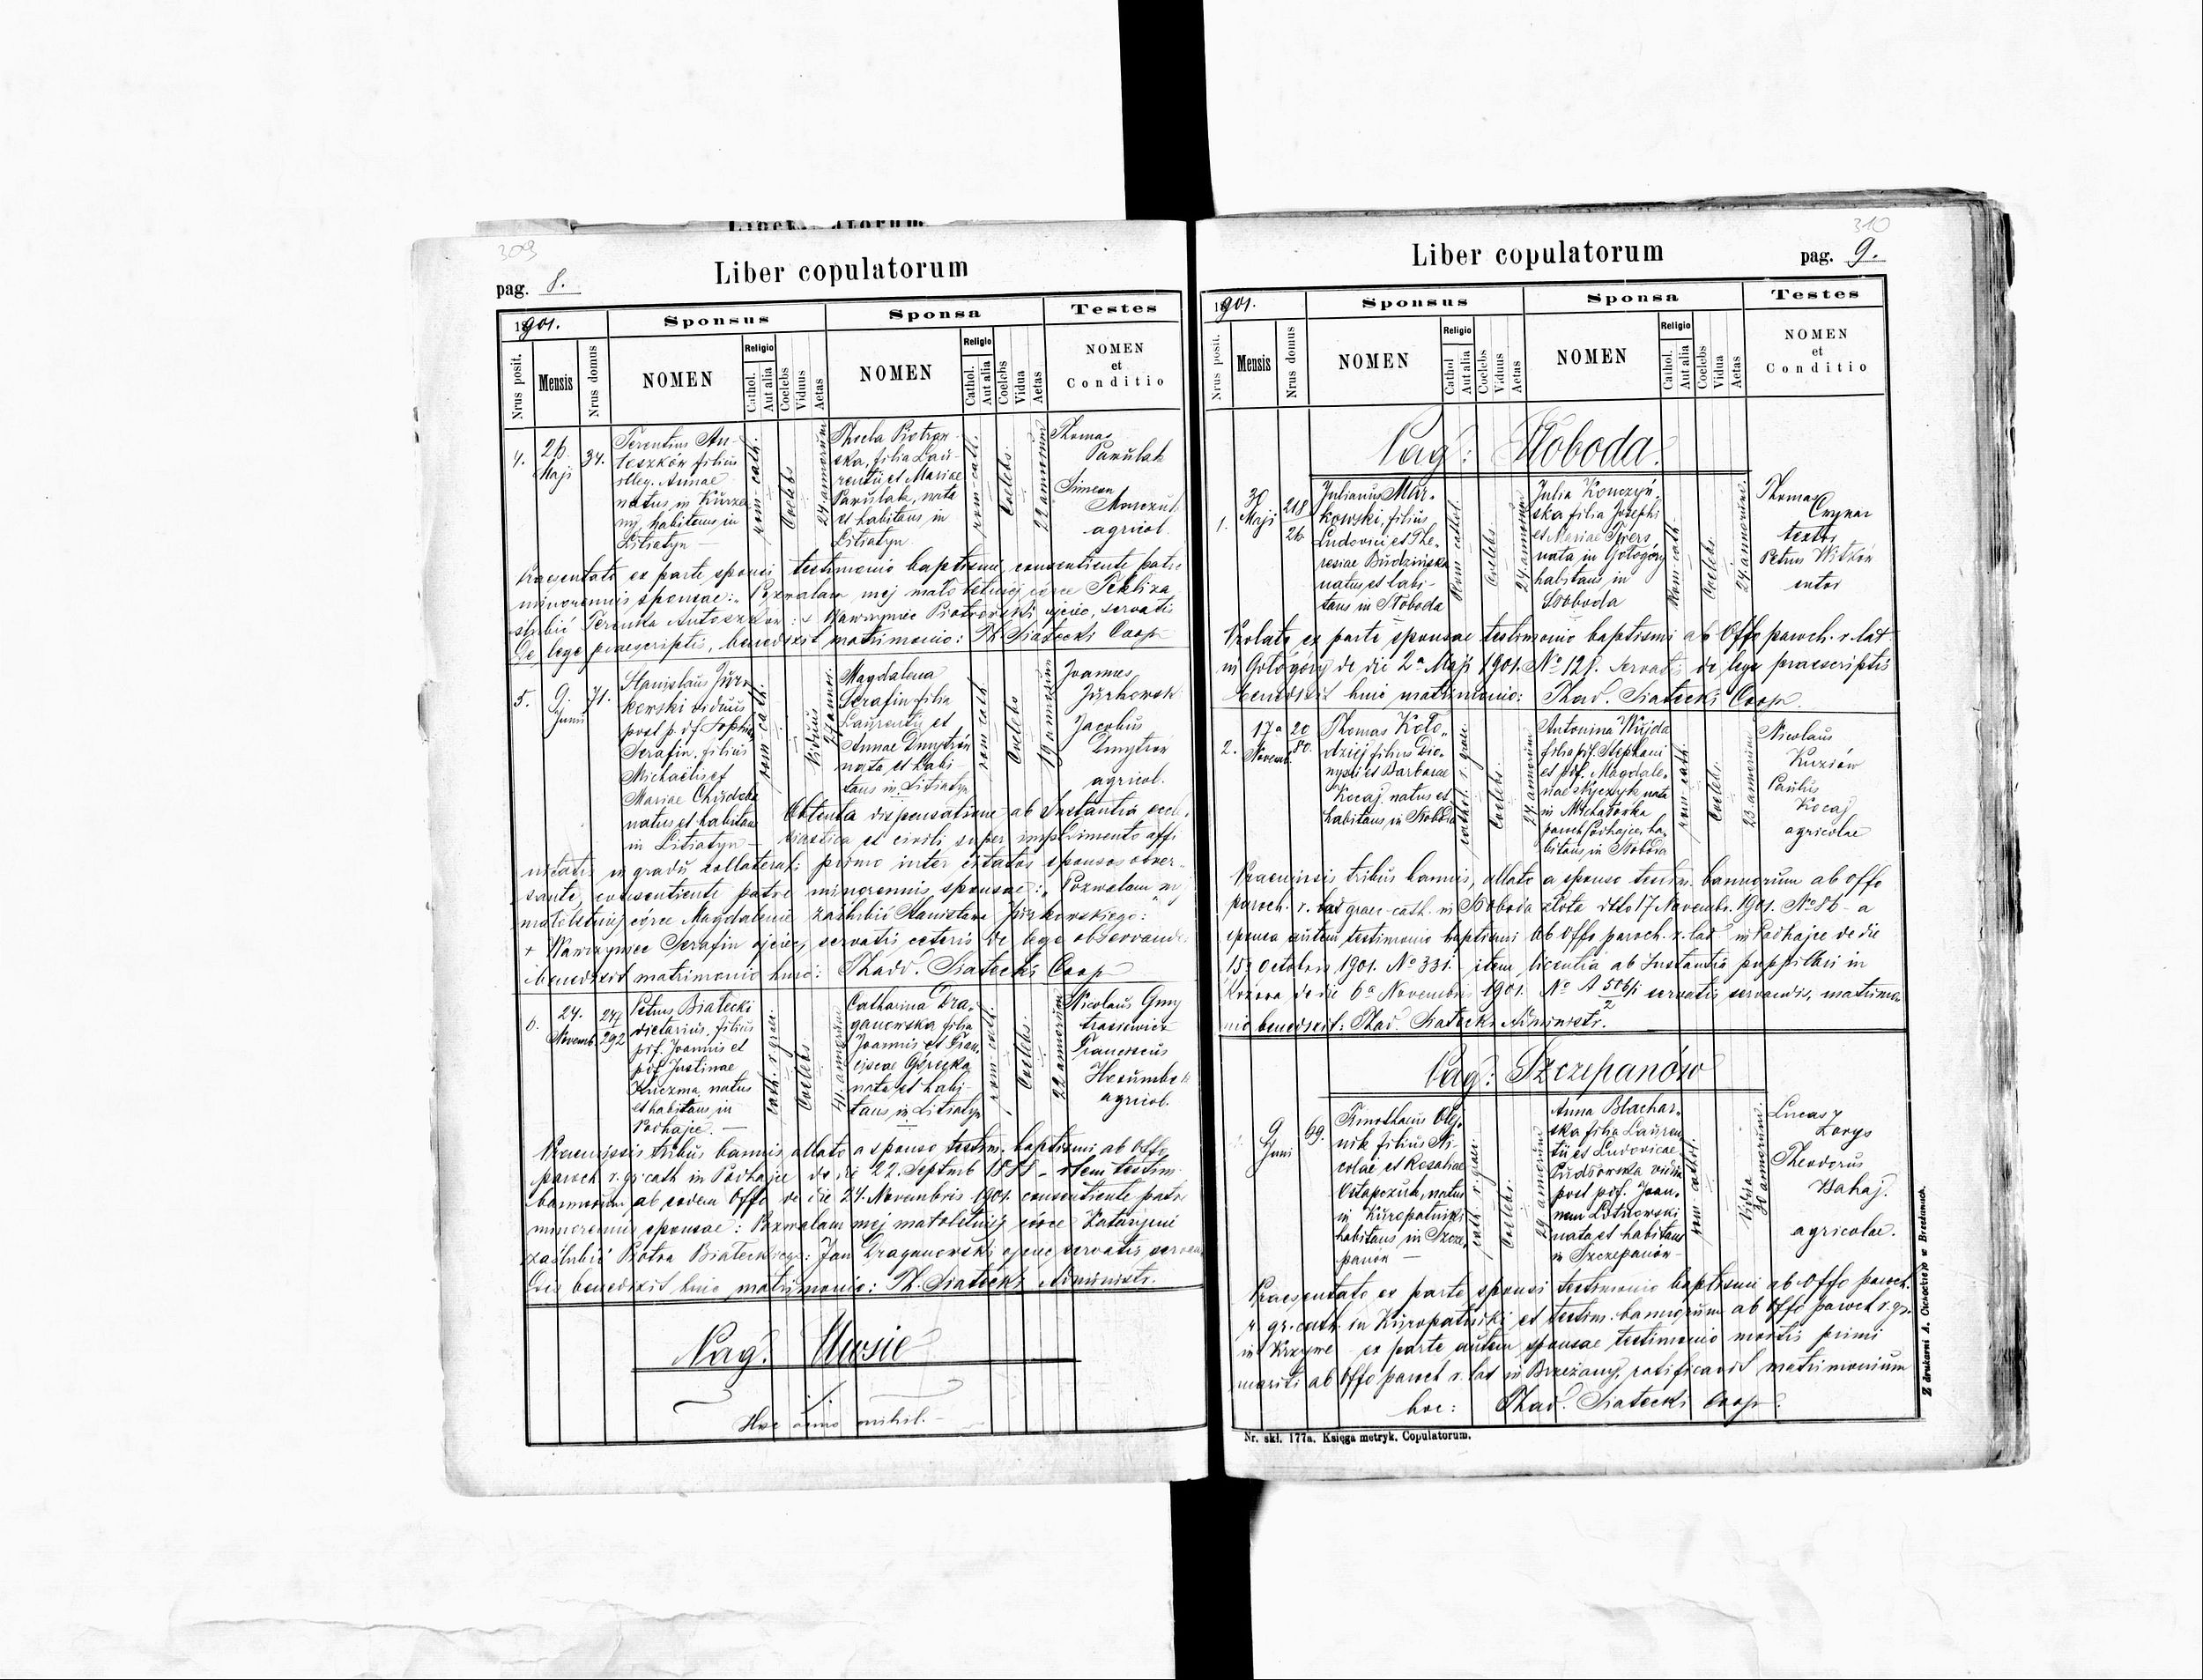 309
Liber copulatorum
pag. 8.
1901.
Sponsus
Sponsa
Testes
Nrus posit.
Mensis
Nrus domus
NOMEN
Religio
Cathol.
Aut alia
Coelebs
Viduus
Aetas
NOMEN
Religio
Cathol.
Aut alia
Coelebs
Vidua
Aetas
NOMEN
et
Conditio
4.
26
Maji
34.
Terentius An-
toszków filius
illeg. Annae
natus in
habitans in
Litiatyn
rom-cath.
Coelebs
24 annorum
Thecla Piotrow
ska, filia Lau-
rentii et Mariae
Pawulak, nata
et habitans in
Litiatyn
rom-cath.
Coelebs
22 annorum
Thomas
Pawulak
Simeon
agricol.
Praesentato ex parte sponsi testimonio baptismi, consentiente patre
minorennis sponsae: Pozwalam mej małoletniej córce Tekli za
ślubić Terenta Antoszków: + Wawrzyniec Piotrowski ojciec, servatis
de lege praescriptis, benedixit matrimonio: Th. Siatecki Coop
5.
9.
Junii
71.
Stanislaus Jurz
kowski viduus
post p. df. Sophia
Serafin, filius
Michaelis et
Mariae Chudoba
natus et habitans
in Litiatyn
rom-cath.
Viduus
27 annor.
Magdalena
Serafin filia
Laurentii et
Annae Dmytrów
nata et habi
tans in Litiatyn
rom cath.
Coelebs
19 annorum
Joannes
Jurkowsk
Jacobus
Dmytrów
agricol.
Obtenta dispensatione ab Instantia eccle
siastica et civili super impedimento affi
nitatis in gradu collaterali primo inter citatos sponsos obver-
sante, consentiente patre minorennis sponsae: „Pozwalam mej
małoletniej córce Magdalenie zaślubić Stanisława Jurkowskiego:
+ Wawrzyniec Serafin ojciec, servatis ceteris de lege observand
benedixit matrimonio huic: Thadd. Siatecki Coop
6.
24.
Novemb.
247
292
Petrus Białecki
dietarius, filius
pdf. Joannis et
pdf Justinae
Kuczma natus
et habitans in
Podhajce.
cath. r. graec.
Coelebs
41. annorum
Catharina Dra-
ganowska filia
Joannis et Fran
ciscae Górecka
nata et habi-
tans in Litiatyn
rom-cath.
Coelebs
22 annorum
Nicolaus Gmy
trasiewicz
Franciscus
agricol.
Praemissis tribus bannis, allato a sponso testim. baptismi ab Offo
paroch r. gr cath in Podhajce de die 22. Septmb 1888 - item testim
bannorum ab eodem Offo de die 24. Novembris 1901. consentiente patre
minorennis sponsae: Pozwalam mej małoletniej córce Katarzynie
zaślubić Piotra Białeckiego: Jan Draganowski ojciec servatis servan
dis benedixit huic matrimonio: Th. Siatecki Administr.
Pag. Uwsie
Hoc anno nihil.
310
Liber copulatorum
pag. 9.
1901.
Sponsus
Sponsa
Testes
Nrus posit.
Mensis
Nrus domus
NOMEN
Religio
Cathol
Aut alia
Coelebs
Viduus
Aetas
NOMEN
Religio
Cathol.
Aut alia
Coelebs
Vidua
Aetas
NOMEN
et
Conditio
Pag: Słoboda.
1.
30
Maji
218
26
Julianus Mar-
kowski, filius
Ludovici et The-
resiae Budzińska
natus et habi-
tans in Słoboda
Rom cathol.
Coelebs.
24 annorum
Julia Konczyń-
ska filia Josephi
et Mariae Spiers
nata in Gołogóry
habitans in
Słoboda
Rom-cath.
Coelebs.
24. annorum.
Thomas
Cwynar
Petrus Witków
Prolato ex parte sponsae testimonio baptismi ab Offo paroch. r. lat
in Gołogóry de die 2a Maji 1901. No 121. servatis de lege praescriptis
benedixit huic matrimonio: Thad. Siatecki Coop.
2.
17a
Novemb.
20
80.
Thomas Koło-
dziej filius Dio-
nysii et Barbarae
Kocaj natus et
habitans in Słoboda
cathol. r. graec.
Coelebs.
24 annorum
Antonina Wujda
filia pdf. Stephani
et pdf. Magdale-
nae Styczyk nata
in Michałówka
paroch Podhajce, ha-
bitans in Słoboda
rom-cath.
Coelebs.
23 annorum
Nicolaus
Kuziów
Paulus
Kocaj
agricolae
Praemissis tribus bannis, allato a sponso testim. bannorum ab offo
paroch. r. graec-cath. in Słoboda złota dtto 17 Novembr. 1901. No 86 - a
sponsa autem testimonio baptismi ab Offo paroch. r. lat in Podhajce de die
15a Octobris 1901. No 331. item licentia ab Instantia puppillari in
Kozowa de die 6a Novembris 1901. No A 50/1 servatis servandis, matrimo
nio benedixit: Thad. Siatecki Administr.
Pag: Szczepanów
9
Juni
69.
Timotheus Olej-
nik filius Ni-
colai et Rosaliae
Ostapczuk, natus
in Kuropatniki
habitans in Szcze-
panów
cath r. graec.
Coelebs.
29 annorum
Anna Blachar-
ska filia Lauren-
tii et Ludovicae
vidua
post pdf. Joan-
nem
nata et habitans
in Szczepanów
rom cathol.
Vidua
30 annorum
Lucas
Zarys
Theodorus
Bahaj.
agricolae.
Praesentato ex parte sponsi testimonio baptismi ab Offo paroch.
r. gr. cath. in Kuropatniki et testim. bannorum ab Offo paroch r. gr.
in Krzywe ex parte autem sponsae testimonio mortis primi
mariti ab Offo paroch r. lat in Brzeżany, ratificavit matrimonium
hoc: Thad. Siatecki Coop.
Z drukarni A. Cichockiego w Brzeżanach.
Nr. skł. 177a. Księga metryk. Copulatorum.